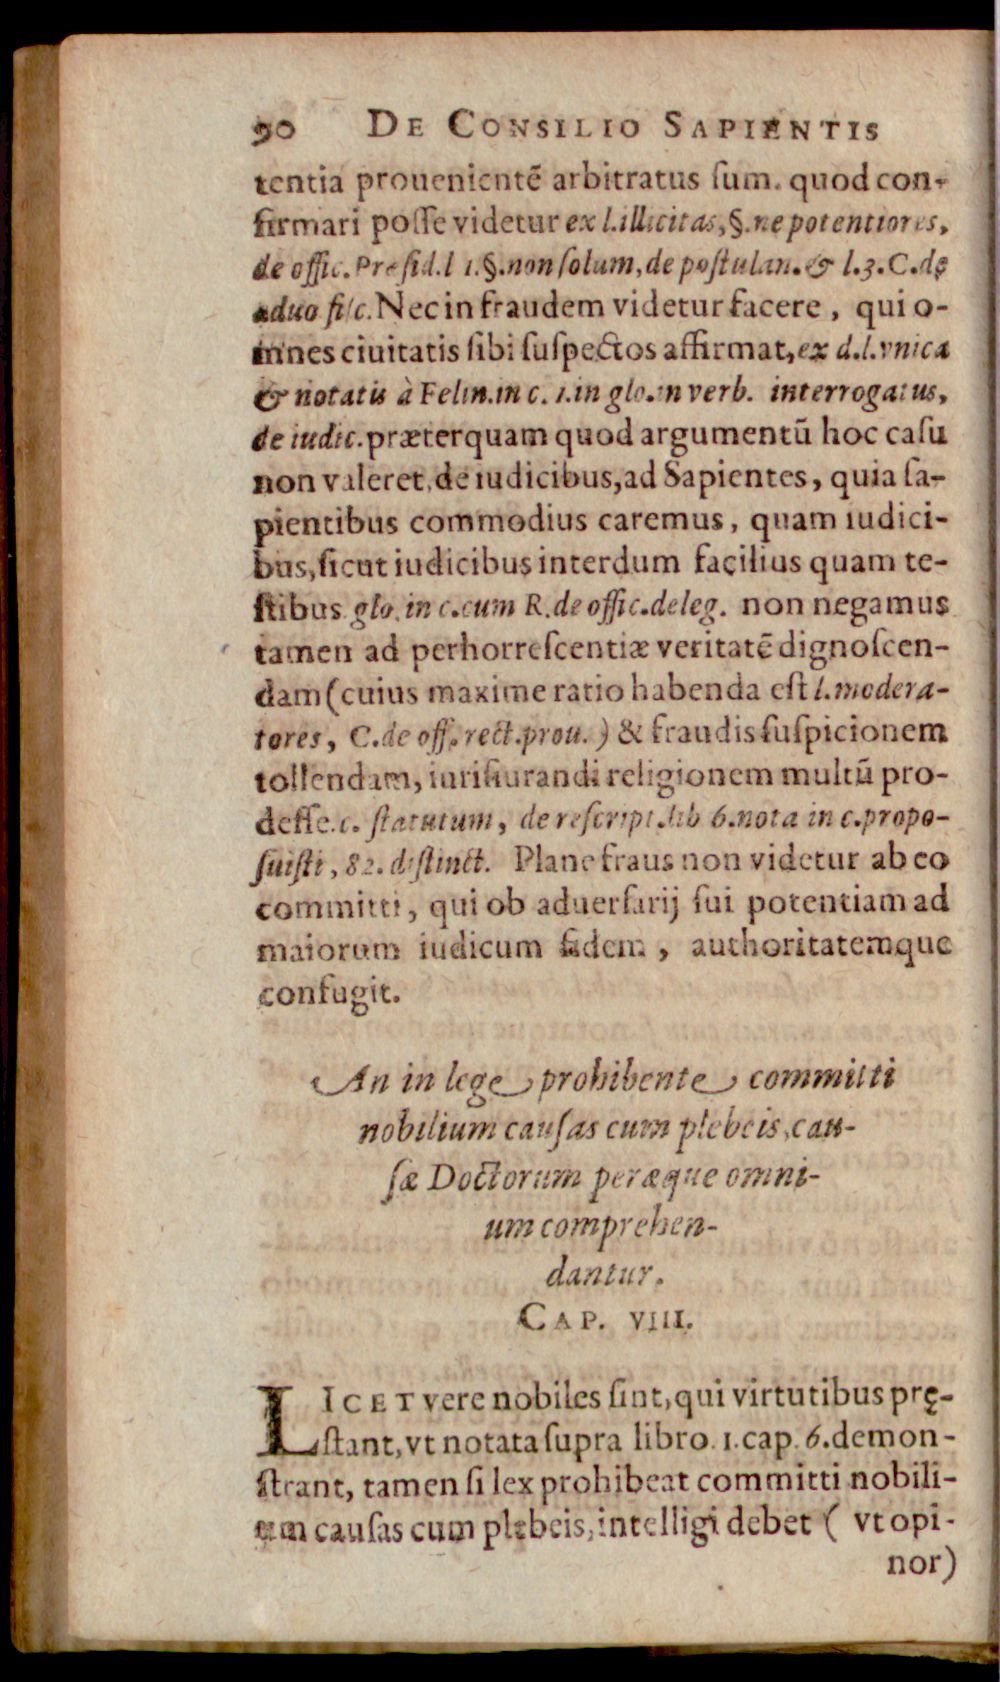 90 DE CONSILIO SAPIENTIS
tentia prouenientē arbitratus ſum. quod con-
firmari poſſe videtur ex l.illicitas,§.ne potentiores,
de offic.Præſid.l 1.§.non ſolum,de poſtulan.& l.3.C.de
aduo fiſc. Nec in fraudem videtur facere, qui o-
mnes ciuitatis ſibi ſuſpectos affirmat,ex d.l.vnica
& notatis à Felin.in c. 1.in glo.in verb. interrogatus,
de iudic.præterquam quod argumentū hoc caſu
non valeret,de iudicibus,ad Sapientes, quia ſa-
pientibus commodius caremus, quam iudici-
bus,ſicut iudicibus interdum facilius quam te-
ſtibus glo.in c.cum R.de offic.deleg. non negamus
tamen ad perhorreſcentiæ veritatē dignoſcen-
dam (cuius maxime ratio habenda eſt l.modera-
tores, C.de off.rect.prou.) & fraudis ſuſpicionem
tollendam, iuriſiurandi religionem multū pro-
deſſe.c. ſtatutum, de reſcript.lib 6.nota in c.propo-
ſuiſti, 82. diſtinct. Plane fraus non videtur ab eo
committi, qui ob aduerſarij ſui potentiam ad
maiorum iudicum fidem, authoritatemque
confugit.
An in lege prohibente committi
nobilium cauſas cum plebeis,cau-
ſæ Doctorum peræque omni-
um comprehen-
dantur.
CAP. VIII.
LICET vere nobiles ſint,qui virtutibus prę-
ſtant,vt notata ſupra libro.1.cap.6.demon-
ſtrant, tamen ſi lex prohibeat committi nobili-
um cauſas cum plebeis,intelligi debet ( vt opi-
nor)